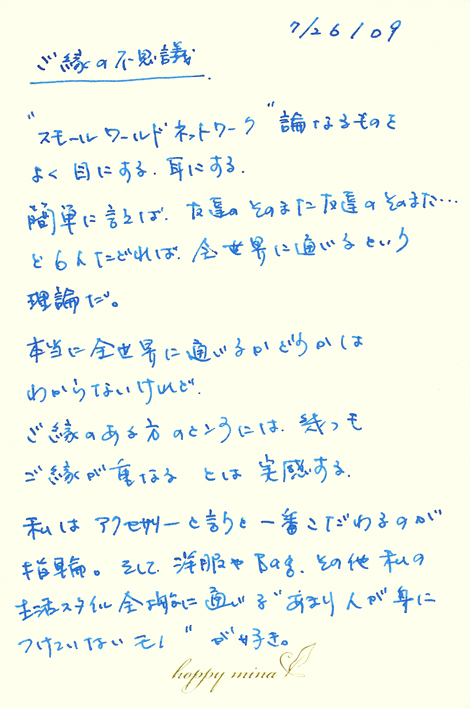 7/26/09
ご縁の不思議
"スモールワールドネットワーク"論なるものを
よく目にする、耳にする。
簡単に言えば、友達のそのまた友達のそのまた…
と6人たどれば、全世界に通じるという
理論だ。
本当に全世界に通じるかどうかは
わからないけれど、
ご縁のある方のところには、幾つも
ご縁が重なる とは 実感する。
私は アクセサリーと言うと一番こだわるのが
指輪。そして 洋服やBag、その他 私の
生活スタイル全般に通じる"あまり人が身に
つけていないモノ"が好き。
happy mina